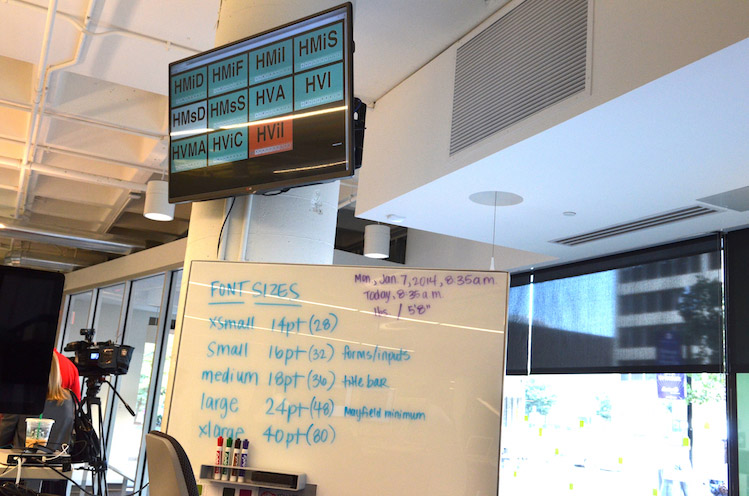 HMiD HMiF HMiI HMiS
HMsD HMsS HVA HVI
HVMA HViC HViI
FONT SIZES
xsmall 14pt (28)
small 16pt (32) forms/inputs
medium 18pt (36) title bar
large 24pt (48) Mayfield minimum
xlarge 40pt (80)
Mon, Jan 7, 2014, 8:35am
Today, 8:35 am
lbs / 5'8"